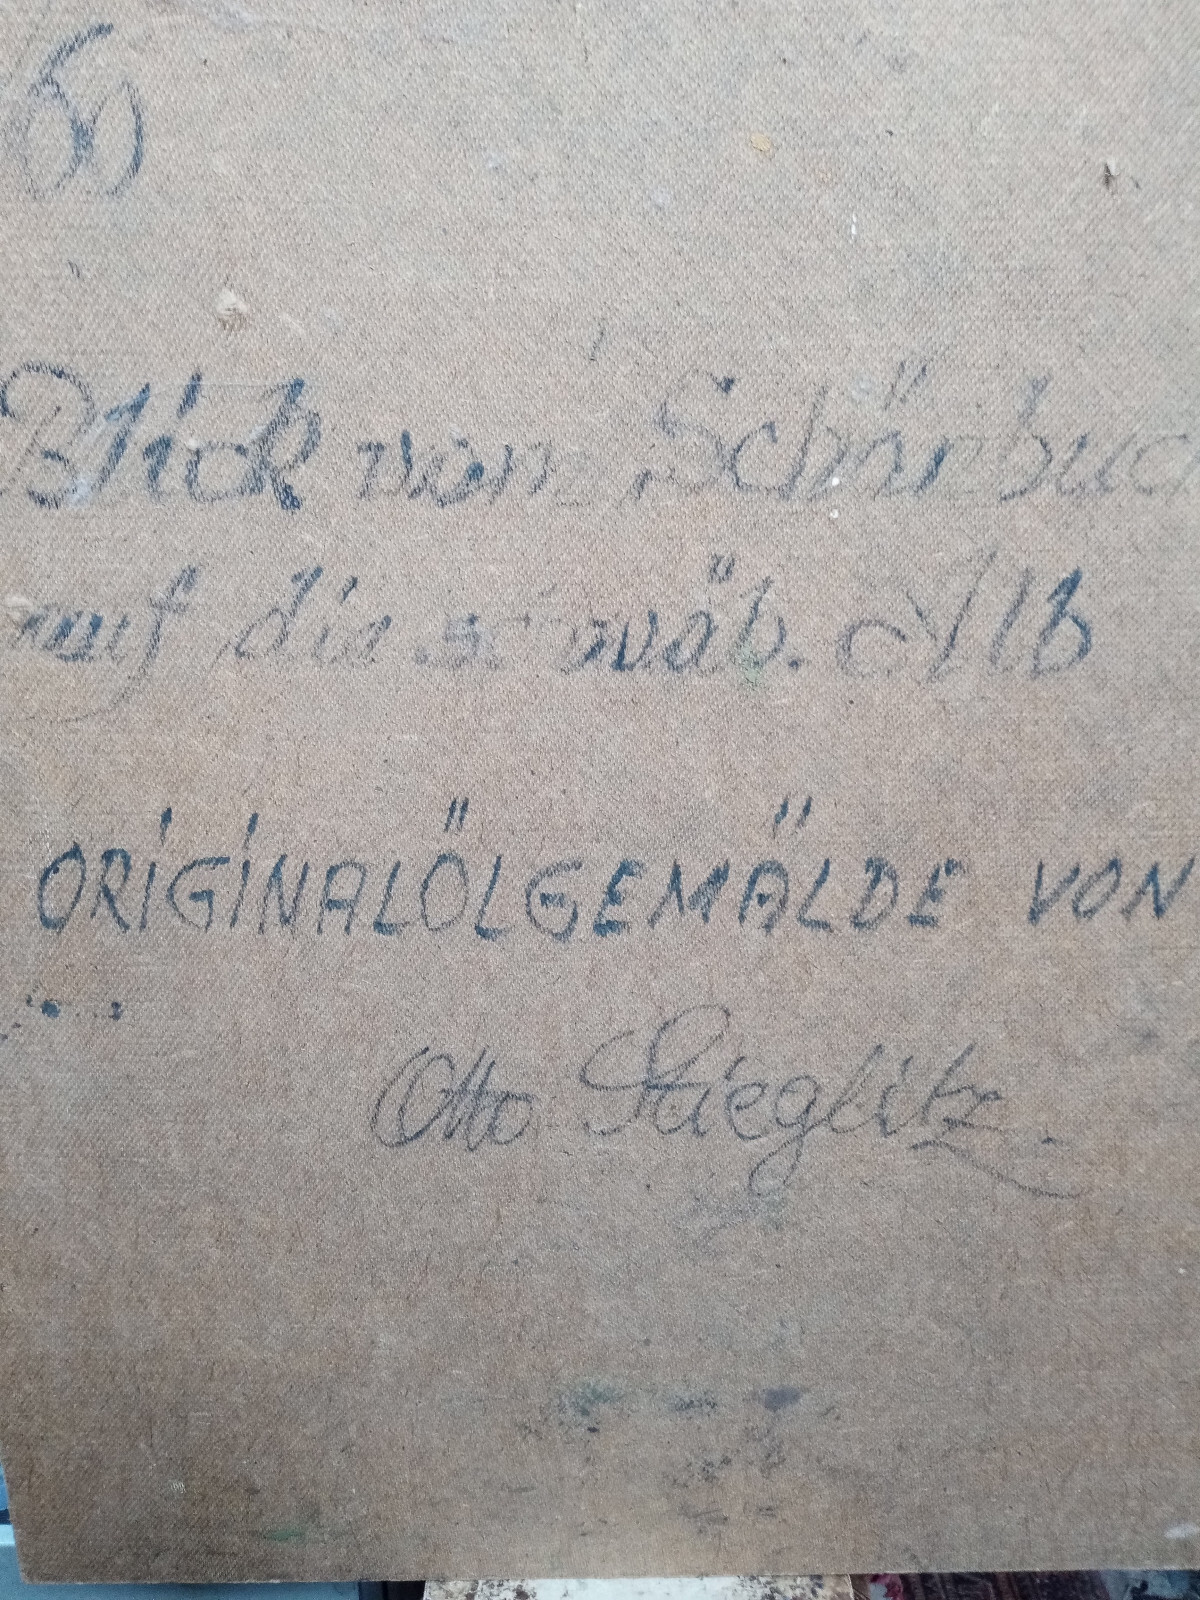 Blick von Schönbuc
auf die schwäb. Alb
ORIGINALÖLGEMÄLDE VON
Otto Stieglitz